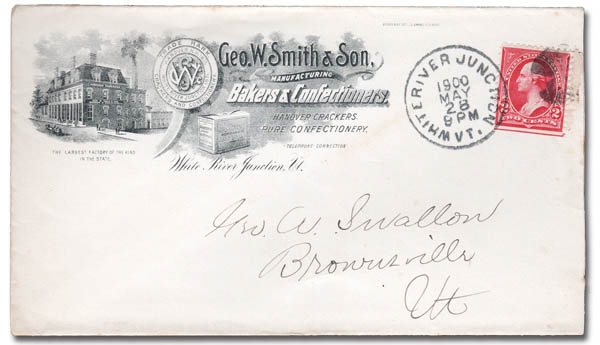 Geo. W. Smith & Son,
MANUFACTURING
Bakers & Confectioners,
HANOVER CRACKERS.
PURE CONFECTIONERY.
TELEPHONE CONNECTION
White River Junction, Vt.
THE LARGEST FACTORY OF THE KIND
IN THE STATE.
TRADE MARK
WHITE RIVER JUNCTION
1900
MAY
28
9 PM
VT.
TWO CENTS
2
Geo. A. Swallow
Brownsville
Vt